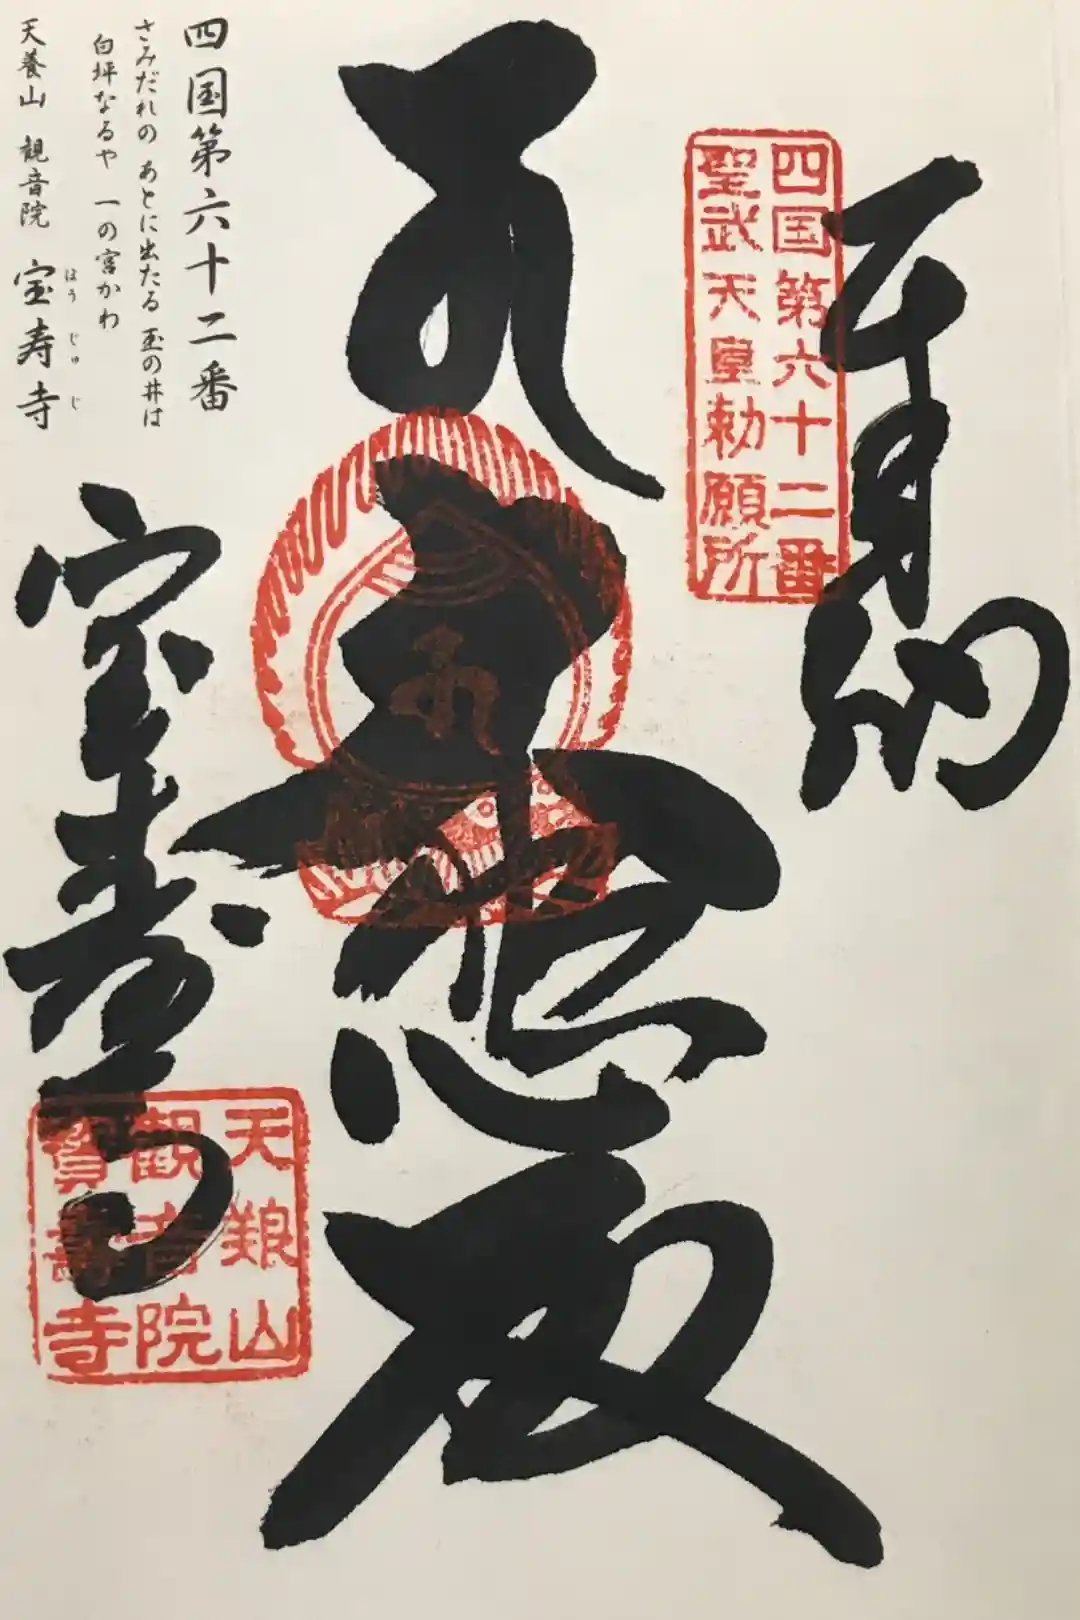 奉納
四国第六十二番
聖武天皇勅願所
大悲殿
四国第六十二番
さみだれの あとに出たる 玉の井は
白坪なるや 一の宮かわ
天養山 観音院 宝寿寺
ほうじゅじ
宝寿寺
天養山
観音院
寳壽寺